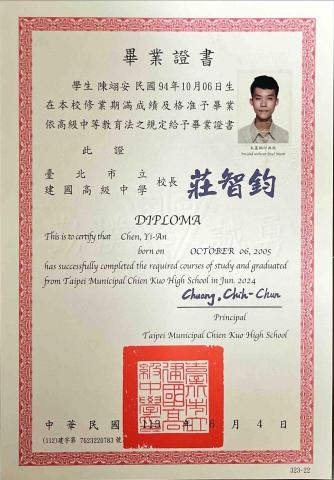 畢業證書
學生 陳翊安 民國94年10月06日生
在本校修業期滿成績及格准予畢業
依高級中等教育法之規定給予畢業證書
此證
臺北市立
建國高級中學
校長
莊智鈞
DIPLOMA
This is to certify that Chen, Yi-An
born on OCTOBER 06, 2005
has successfully completed the required courses of study and graduated
from Taipei Municipal Chien Kuo High School in Jun. 2024
Chuang, Chih-Chun
Principal
Taipei Municipal Chien Kuo High School
中華民國 113年 6月 4日
(112)建字第 7623220783 號
323-22